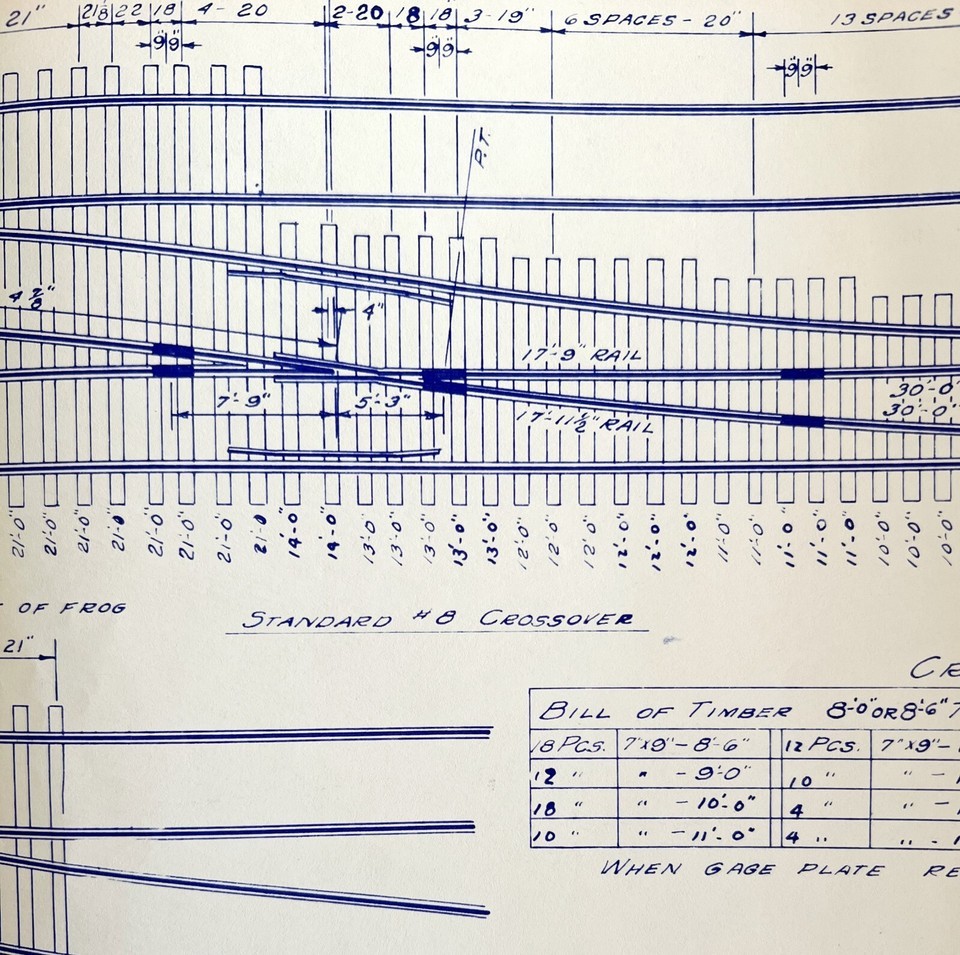 21" 21 8 22 18 4 - 20 2-20 18 18 3-19" 6 SPACES - 20" 13 SPACES
9" 9" 9" 9" 9" 9"
P.T.
4"
17'-9" RAIL
30'-0"
7'-9" 5'-3" 30'-0"
17'-11½" RAIL
21'-0" 21'-0" 21'-0" 21'-0" 21'-0" 21'-0" 21'-0" 21'-0 14'-0" 14'-0" 13'-0" 13'-0" 13'-0" 13'-0" 13'-0" 12'-0" 12'-0" 12'-0" 12'-0" 12'-0" 12'-0" 11'-0" 11'-0" 11'-0" 11'-0" 11'-0" 10'-0" 10'-0" 10'-0"
OF FROG
STANDARD #8 CROSSOVER
21"
BILL OF TIMBER 8'-0" OR 8'-6"
18 PCS. 7"x9" - 8'-6" 12 PCS. 7"x9" -
12 " " - 9'-0" 10 " " -
18 " " - 10'-0" 4 " " -
10 " " - 11'-0" 4 " " -
WHEN GAGE PLATE